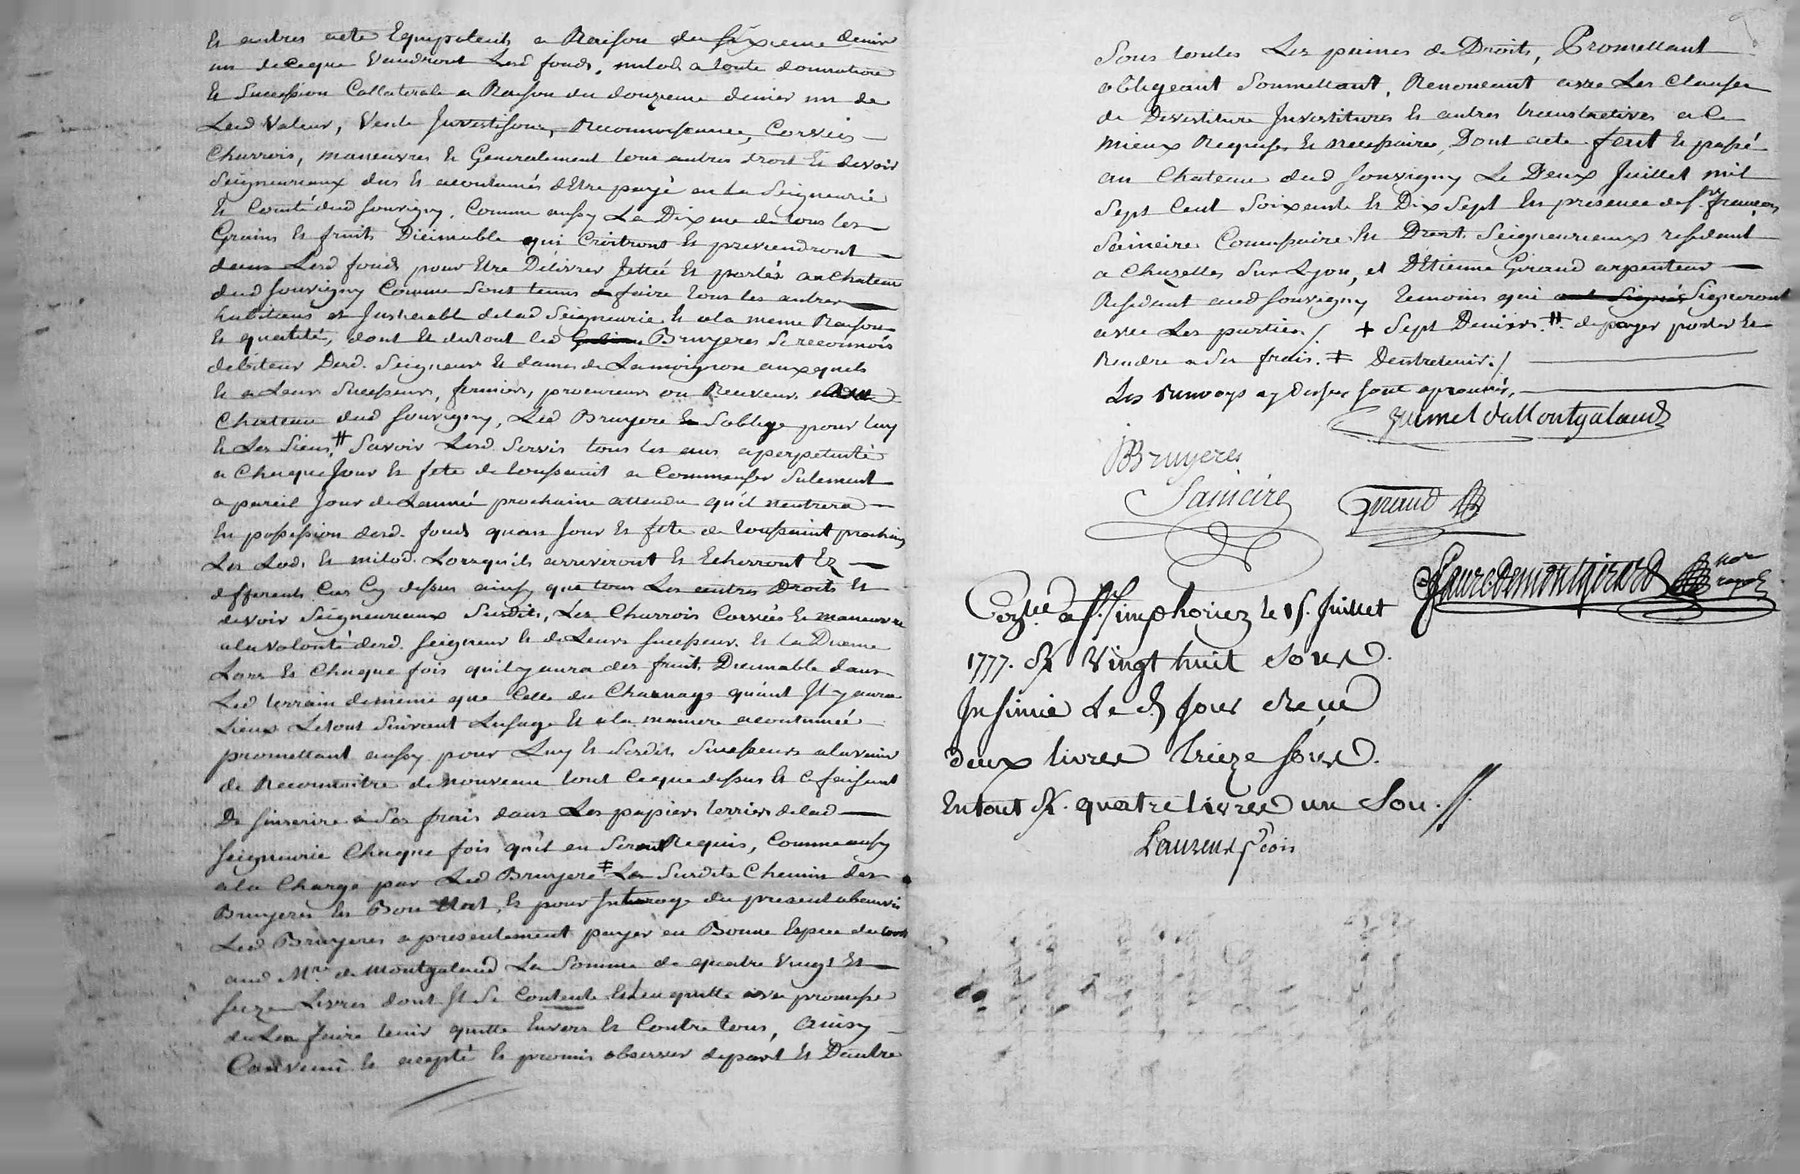 Et autres acte Equipolents a Raison du sixieme denier
un de ce que vaudront Lesd fonds, milods a toute donnation
Et Sucession Collaterale a Raison du douzieme denier un de
Leur valeur, Vente Investison, Reconnoissance, Corvéés
Charrois, maneuvres Et Generalement tous autres droit Et devoir
Seigneuriaux dus Et acoutumés d'Etre payé en La Seigneurie
Et Comté dud Souvigny, Comme aussy La Dixme de tous les
Grains Et fruits Décimable qui Croitront Et previendront
dans Lesd fonds pour Etre Délivrer Jettée Et portés au Chateau
dud Souvigny Comme Sont tenus de faire tous les autres
habitans et Justiciable delad Seigneurie Et a la meme Raison
Et quotité, dont Et du tout led Bruyeres Se reconnois
debiteur Desd. Seigneur Et dames de Lamoignon auxquels
Et a Leurs Sucesseurs, fermiers, procureurs ou Receveurs
Chateau dud Souvigny, Led Bruyere Soblige pour luy
Et Les Siens # Savoir Lesd Servis tous les ans a perpetuité
a Chaque Jour Et fete de toussaint a Commenser Sulement
a pareil Jour de Lannée prochaine attendu qu'il nentrera
En possession desd. fonds quau Jour Et fete de toussaint prochain
Les Lods Et milod. Lorsqu'ils arriveront Et Echerront Ez
differents Cas Cy dessus ainsy que tous Les autres Droits Et
devoir Seigneuriaux Susdits, Les Charrois Corvéés Et maneuvre
a la volonté desd. Seigneur Et de Leurs sucesseur. Et La Dixme
Lors Et Chaque fois qu'il y aura des fruits Decimable dans
Led terrain de meme que Celle du Charnage quant Il y aura
Lieux Le tout Suivant Lusage Et a la maniere acoutumée
promettant aussy pour Luy Et Sesdits Sucesseurs a lavenir
de Reconnoitre de nouveau tout Ceque dessus Et Ce faisant
De Sinscrire à Ses frais dans Les papiers terriers delad
Seigneurie Chaque fois qu'il en Sera Requis, Comme aussy
a la Charge par Led Bruyere ‡ Les Susdits Chemin des
Bruyeres En Bon Etat, Et pour du present abenevis
Led Bruyeres a presentement payer en Bonne Espece de Cours
aud Mre de Montgaland La Somme de quatre Vingt Et
seize Livres dont Il Se Contente Et Len quitte avec promesse
de Len faire tenir quitte Envers Et Contre tous, Ainsy
Convenu Et acepté Et promis observer de part Et Dautre
Sous toutes Les peines de Droits, Promettant
obligeant Soumettant, Renonceant avec Les Clauses
de Devestiture Investitures Et autres translatives a Ce
mieux Requises Et necessaire, Dont acte fait Et passé
au Chateau dud Souvigny Le Deux Juillet mil
Sept Cent Soixante Et Dix Sept En presence de Sr. françois
Saineire Commissaire En Droit Seigneuriaux residant
a Chazelles Sur Lyon, et D'Etienne Giraud arpenteur
Residant aud Souvigny temoins qui ont Signés Signeront
avec Les parties / + Sept Deniers. # de payer porter Et
Rendre a Ses frais. ‡ Dentretenir. /
Les renvoys cy dessus sont aprouvés,
Grimel de Montgaland
JB Bruyeres
Saineire
Giraud
Faure de montgirard nore royal
Contlé. a St. Simphorien le 15. Juillet
1777. Rx Vingt huit Sous.
Insinué Le d Jour Reçu
deux livres treize Sous.
En tout Rx. quatre livres un Sou. //.
Laurenson